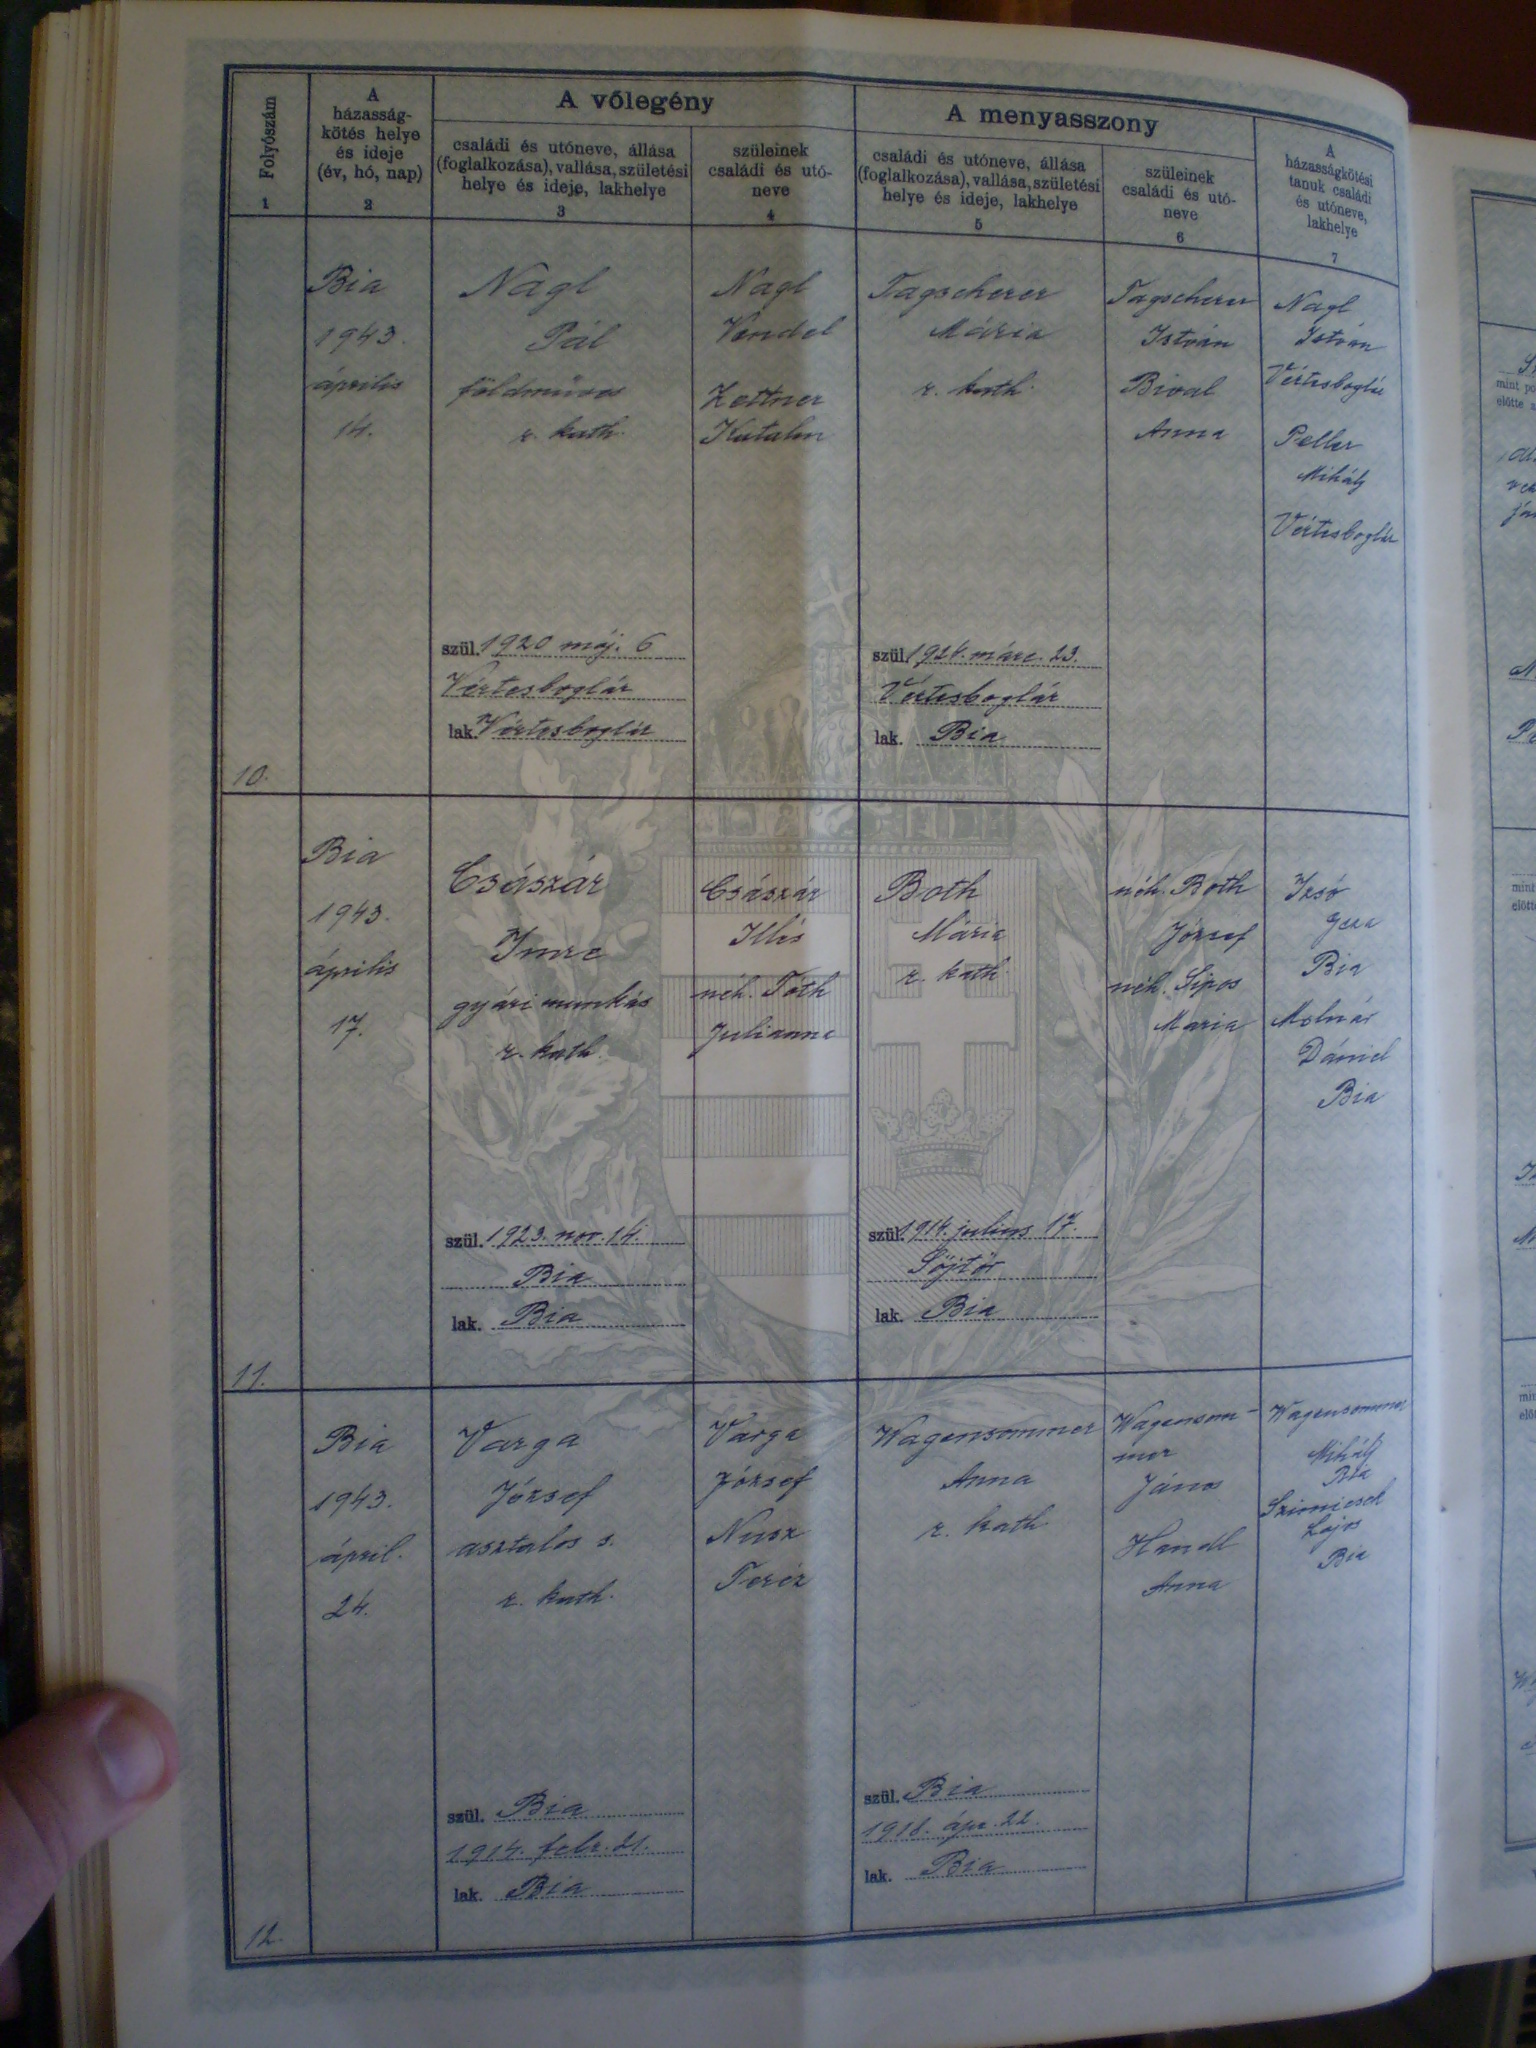 Folyószám
1
A
házasság-
kötés helye
és ideje
(év, hó, nap)
2
A vőlegény
családi és utóneve, állása
(foglalkozása), vallása, születési
helye és ideje, lakhelye
3
szüleinek
családi és utó-
neve
4
A menyasszony
családi és utóneve, állása
(foglalkozása), vallása, születési
helye és ideje, lakhelye
5
szüleinek
családi és utó-
neve
6
A
házasságkötési
tanuk családi
és utóneve,
lakhelye
7
10.
Bia
1943.
április
14.
Nagl
Pál
földmüves
r. kath.
szül. 1920 máj. 6
Vértesboglár
lak. Vértesboglár
Nagl
Vendel
Zettner
Katalin
Tagscherer
Mária
r. kath.
szül. 1924. márc. 23.
Vértesboglár
lak. Bia
Tagscherer
István
Anna
Nagl
István
Vértesboglár
Peller
Mihály
Vértesboglár
11.
Bia
1943.
április
17.
Császár
Imre
gyári munkás
r. kath.
szül. 1923. nov. 14.
Bia
lak. Bia
Császár
Illés
néh. Tóth
Julianna
Both
Mária
r. kath.
szül. 1914. julius 17.
Söjtör
lak. Bia
néh. Both
József
néh. Sipos
Mária
Izsó
Geza
Bia
Molnár
Dániel
Bia
12.
Bia
1943.
ápril.
24.
Varga
József
asztalos s.
r. kath.
szül. Bia
1914. febr. 21.
lak. Bia
Varga
József
Nusz
Teréz
Wagensommer
Anna
r. kath.
szül. Bia
1918. ápr. 22.
lak. Bia
Wagensom-
mer
János
Handl
Anna
Wagensommer
Mihály
Bia
Lajos
Bia
mint
előtte